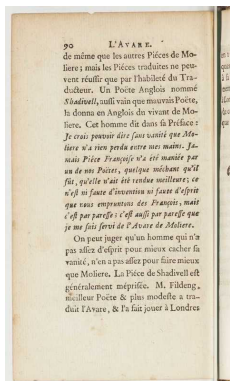 90 L'AVARE.
de même que les autres Piéces de Mo-
liere ; mais les Piéces traduites ne peu-
vent réussir que par l'habileté du Tra-
ducteur. Un Poëte Anglois nommé
Shadivell, aussi vain que mauvais Poëte,
la donna en Anglois du vivant de Mo-
liere. Cet homme dit dans sa Préface :
Je crois pouvoir dire sans vanité que Mo-
liere n'a rien perdu entre mes mains. Ja-
mais Piéce Françoise n'a été maniée par
un de nos Poëtes, quelque méchant qu'il
fût, qu'elle n'ait été rendue meilleure ; ce
n'est ni faute d'invention ni faute d'esprit
que nous empruntons des François, mais
c'est par paresse : c'est aussi par paresse que
je me suis servi de l'Avare de Moliere.
On peut juger qu'un homme qui n'a
pas assez d'esprit pour mieux cacher sa
vanité, n'en a pas assez pour faire mieux
que Moliere. La Piéce de Shadivell est
généralement méprisée. M. Fildeng,
meilleur Poëte & plus modeste a tra-
duit l'Avare, & l'a fait jouer à Londres